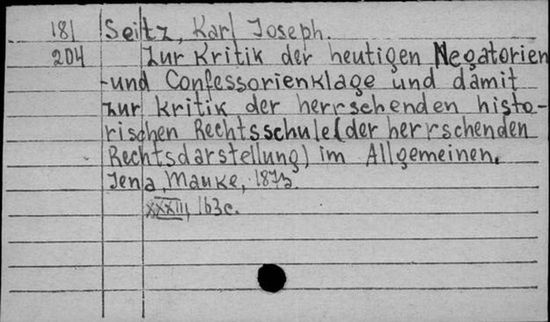 181 Seitz, Karl Joseph.
204 Zur Kritik der heutigen Negatorien
-und Confessorienklage und damit
zur Kritik der herrschenden histo-
rischen Rechtsschule (der herrschenden
Rechtsdarstellung) im Allgemeinen.
Jena, Mauke, 1873.
XXXIII, 163c.